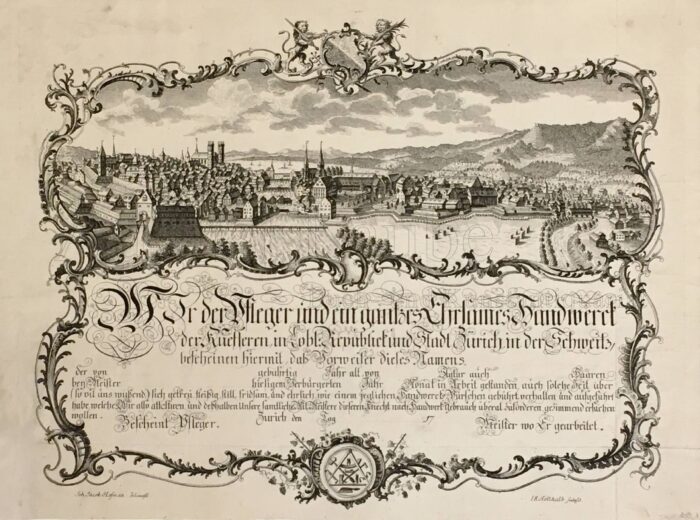 Wir der Pfleger und ein gantzes Ehrsames Handwerck
der Küefleren in Lobl. Republick und Stadt Zürich in der Schweitz,
bescheinen hiermit, daß Vorweiser dieses Namens
der von gebürtig Jahr alt, von Statur auch Haaren
bey Meister hiesigem Verbürgerten Jahr Monat in Arbeit gestanden, auch solche Zeit über
(so vil uns wüßend) sich getreü, fleißig, still, fridsam, und ehrlich, wie einem jeglichen Handwercks-Purschen gebührt, verhalten und aufgeführt
habe, welches Wir also attestiren und deßhalben Unsere samtliche Mit-Meistere diseren Knecht nach Handwercks Gebrauch überal zu förderen geziemend ersuchen
wollen. Zürich den Tag 17
Bescheint Pfleger. Meister wo Er gearbeitet.
Joh. Jacob